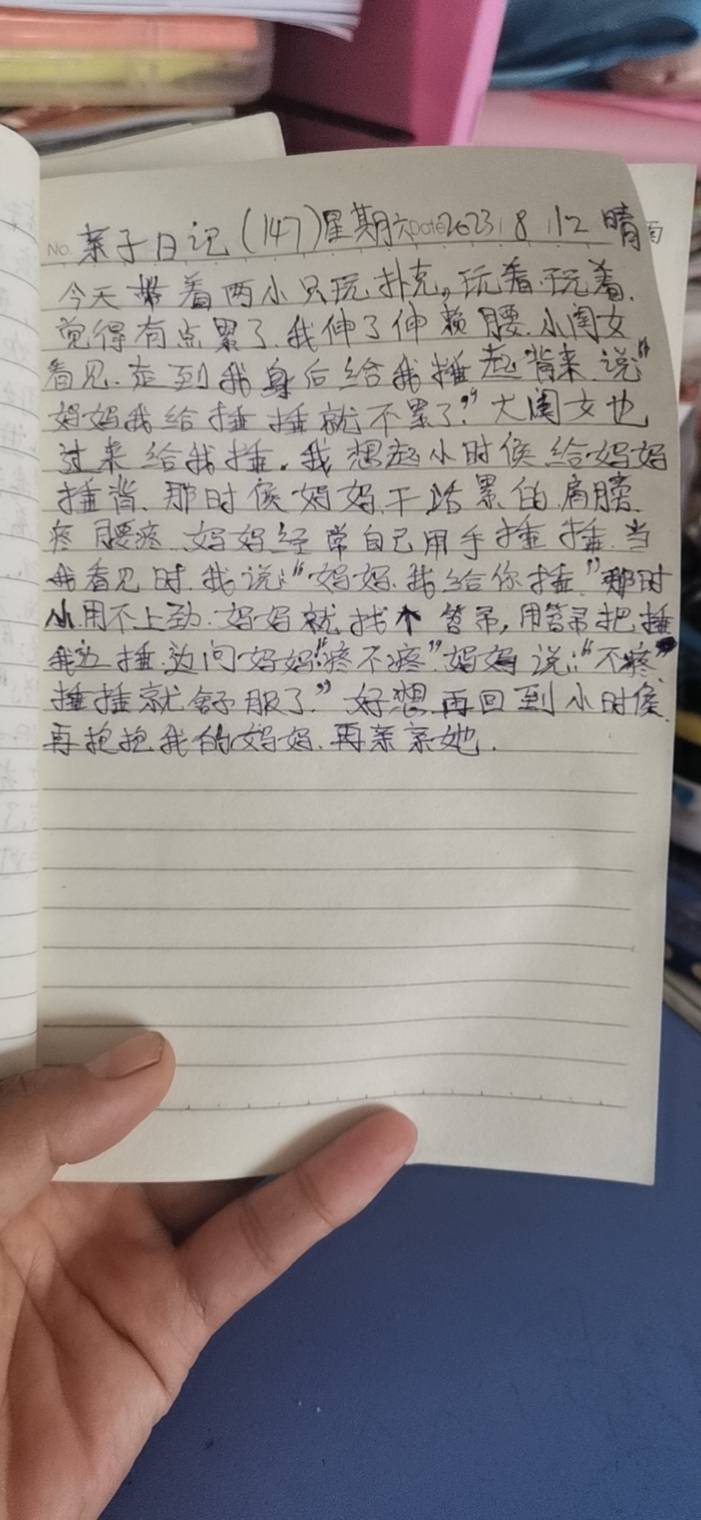 No. 亲子日记(147)星期六 Date 2023 8 12 晴
今天带着两小只玩扑克。玩着玩着.
觉得有点累了.我伸了伸赖腰.小闺女
看见.走到我身后给我捶起背来.说“
妈妈我给捶捶就不累了.”大闺女也
过来给我捶.我想起小时候给妈妈
捶背.那时候妈妈干活累的肩膀
疼腰疼.妈妈经常自己用手捶捶.当
我看见时.我说:“妈妈.我给你捶.”那时
小用不上劲.妈妈就找个笤帚,用笤帚把捶
我边捶.边问妈妈:“疼不疼”.妈妈说:“不疼”
捶捶就舒服了.”好想再回到小时候.
再抱抱我的妈妈.再亲亲她.